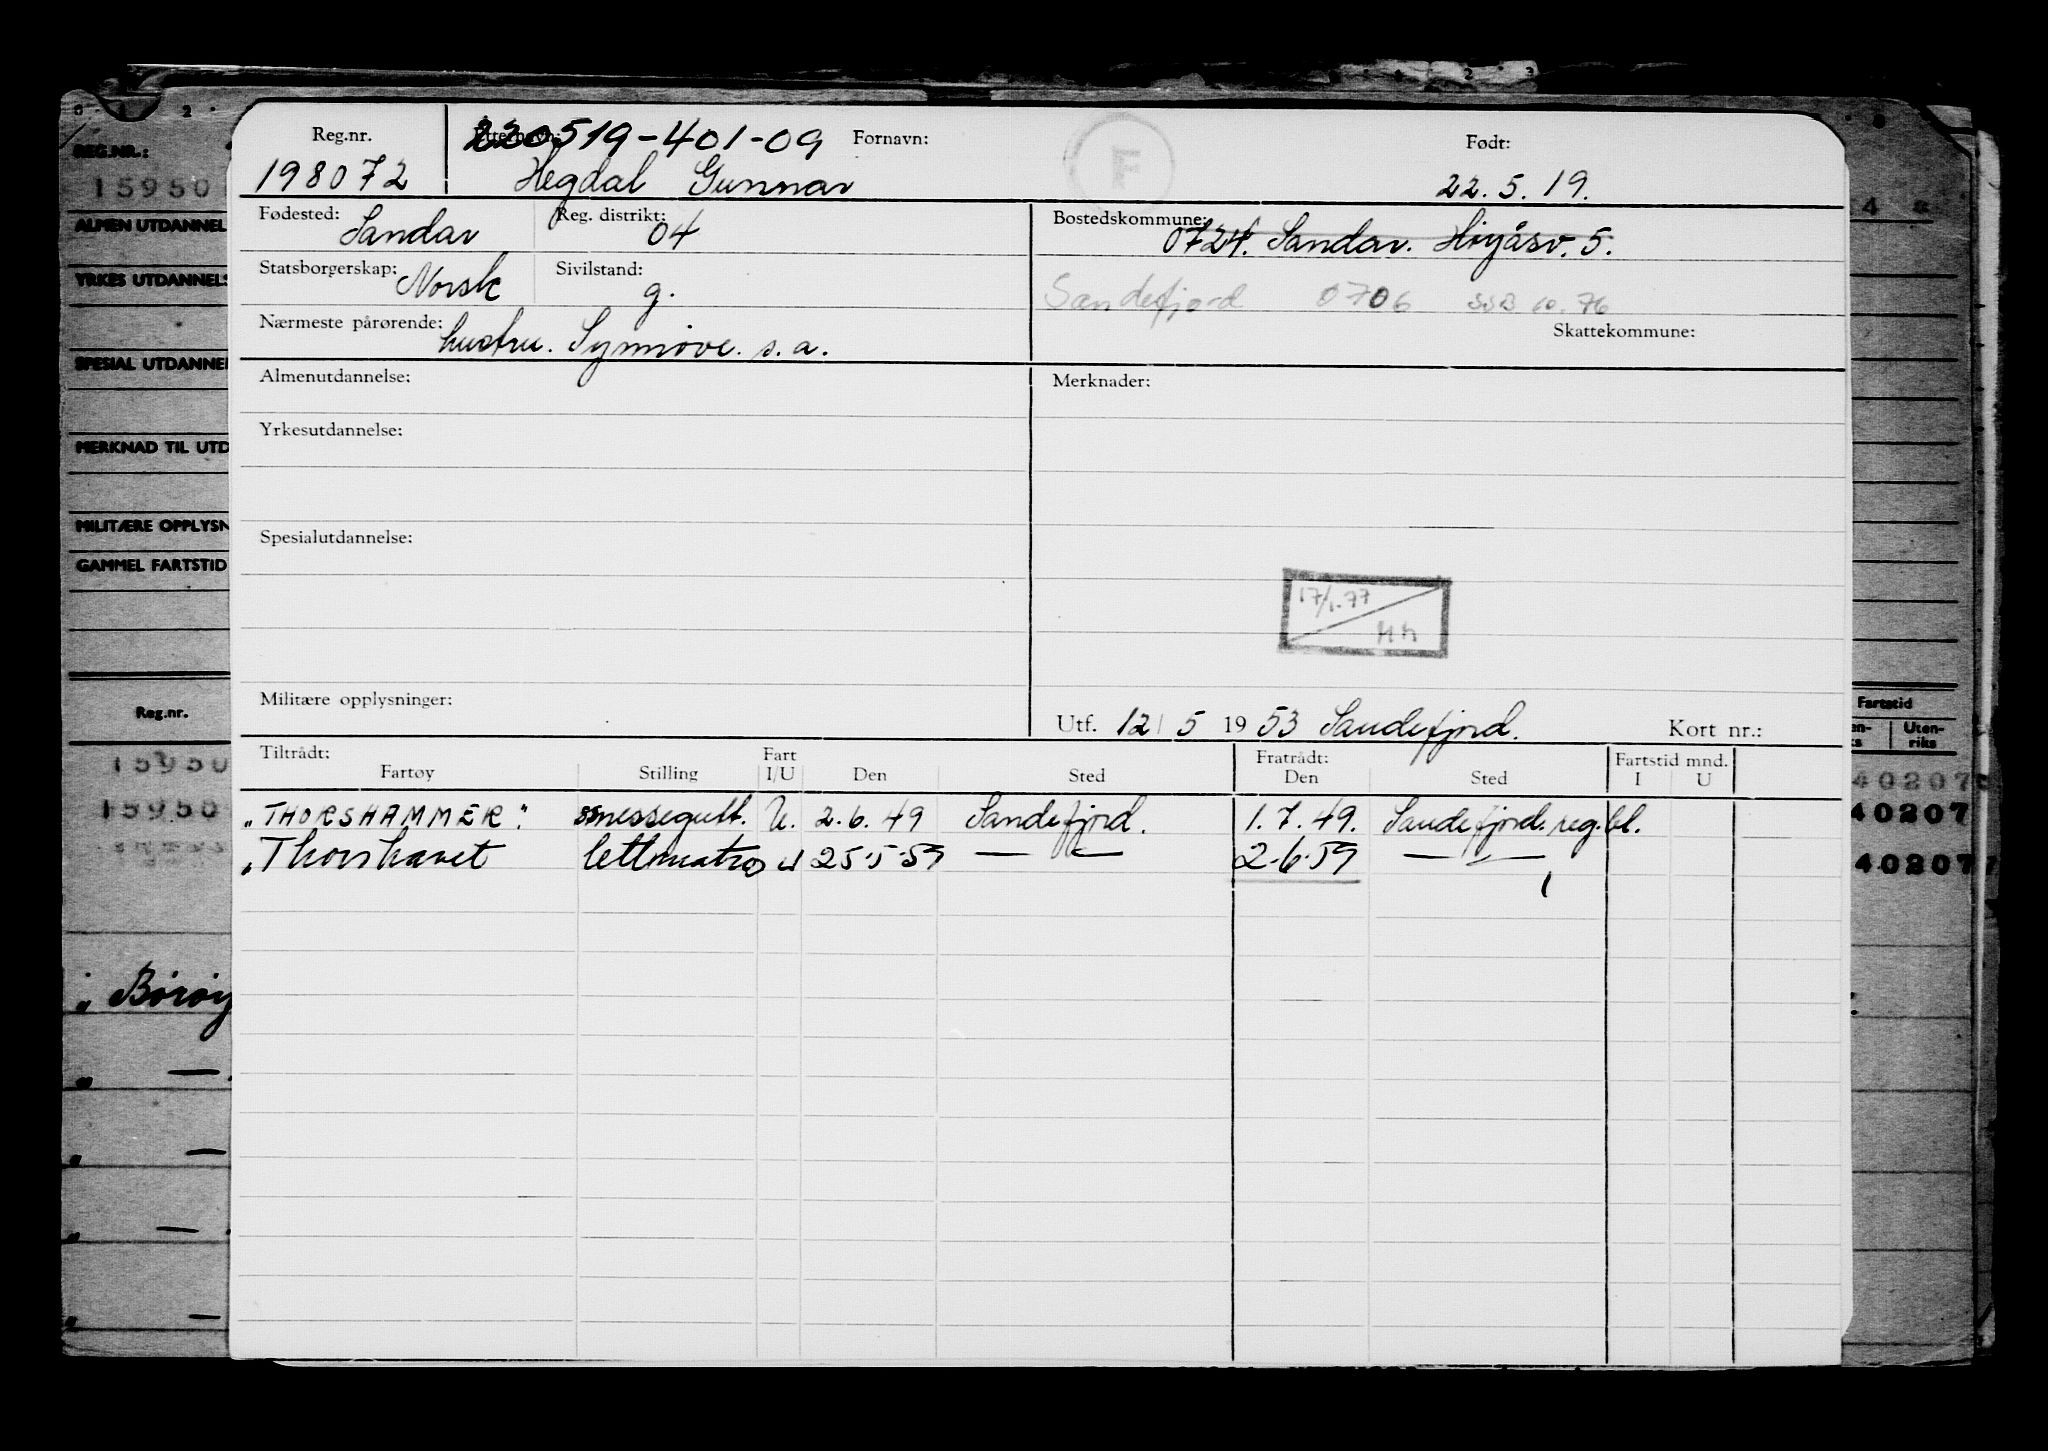 0 1 2
REG.NR.:
15950
ALMEN UTDANNEL
YRKES UTDANNELS
SPESIAL UTDANNEL
MERKNAD TIL UTD
MILITÆRE OPPLYSN
GAMMEL FARTSTID
Reg.nr.
15950
15950
„ Borøy
Reg.nr. Etternavn: 220519-401-09 Fornavn: F Født:
198072 Hegdal Gunnar 22.5.19.
Fødested: Sandar Reg. distrikt: 04 Bostedskommune: 0724. Sandar. Høyåsv. 5.
Statsborgerskap: Norsk Sivilstand: g.
Sandefjord 0706 SSB 10.76
Nærmeste pårørende: hustru. Synnøve. s.a. Skattekommune:
Almenutdannelse: Merknader:
Yrkesutdannelse:
Spesialutdannelse:
17/1.77
Militære opplysninger:
Utf. 12/5 1953 Sandefjord. Kort nr.:
Tiltrådt: Fart Fratrådt: Fartstid mnd.
Fartøy Stilling I/U Den Sted Den Sted I U
„THORSHAMMER". messegutt. U. 2.6.49 Sandefjord. 1.7.49. Sandefjord. reg.bl.
„Thorshavet lettmatros U 25.5.59 — — 2.6.59 — —
Fartstid
Uten-
riks
40207
40207
40207